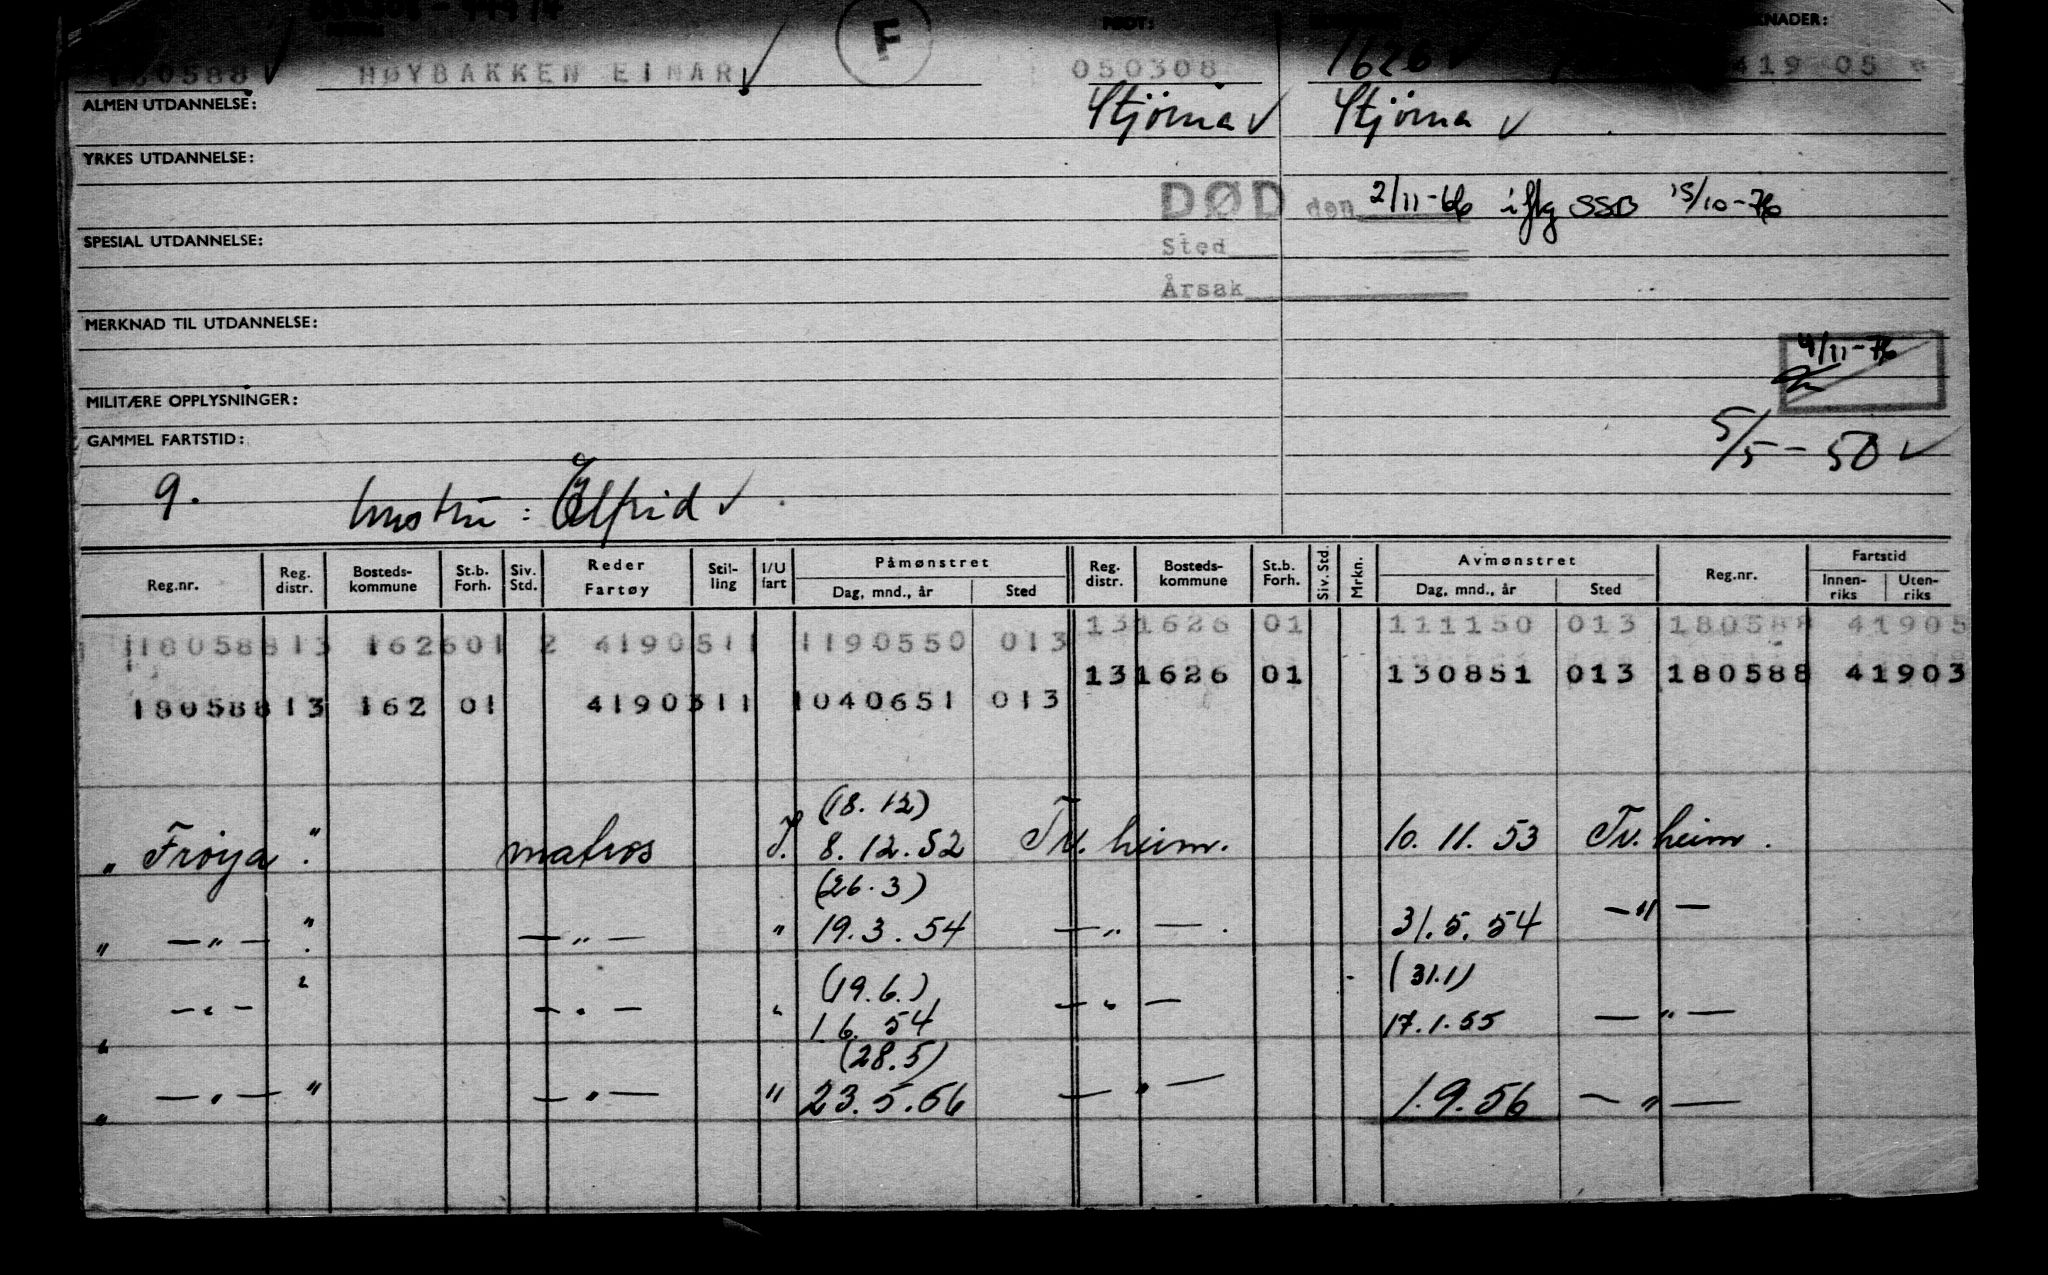 F
FØDT:
KNADER:
180588 HØYBAKKEN EINAR 050308 1626 419 05
ALMEN UTDANNELSE: Stjörna Stjörna
YRKES UTDANNELSE:
DØD den 2/11-66 iflg SSB 15/10-76
SPESIAL UTDANNELSE: Sted
Årsak
MERKNAD TIL UTDANNELSE:
4/11-76
MILITÆRE OPPLYSNINGER:
GAMMEL FARTSTID: 5/5-50
9. hustru: Ölfrid
Reg.nr. Reg. distr. Bosteds-kommune St.b. Forh. Siv. Std. Reder Fartøy Stil-ling I/U fart Påmønstret Dag, mnd., år Sted Reg. distr. Bosteds-kommune St.b. Forh. Siv. Std. Mrkn. Avmønstret Dag, mnd., år Sted Reg.nr. Fartstid Innen-riks Uten-riks
118058813 162601 2 4190511 1190550 013 131626 01 111150 013 180588 41905
131626 01 130851 013 180588 41903
18058813 162 01 4190311 1040651 013
(18.12)
" Frøya " matros I. 8.12.52 Tr.heim. 10.11.53 Tr.heim.
(26.3)
" — " — " — " — " 19.3.54 — " — . 31.5.54 — " —
(19.6.) (31.1)
" — " — " — " — " 1.6.54 — " — 17.1.55 — " —
(28.5)
" — " — " — " — " 23.5.56 — " — 1.9.56 — " —